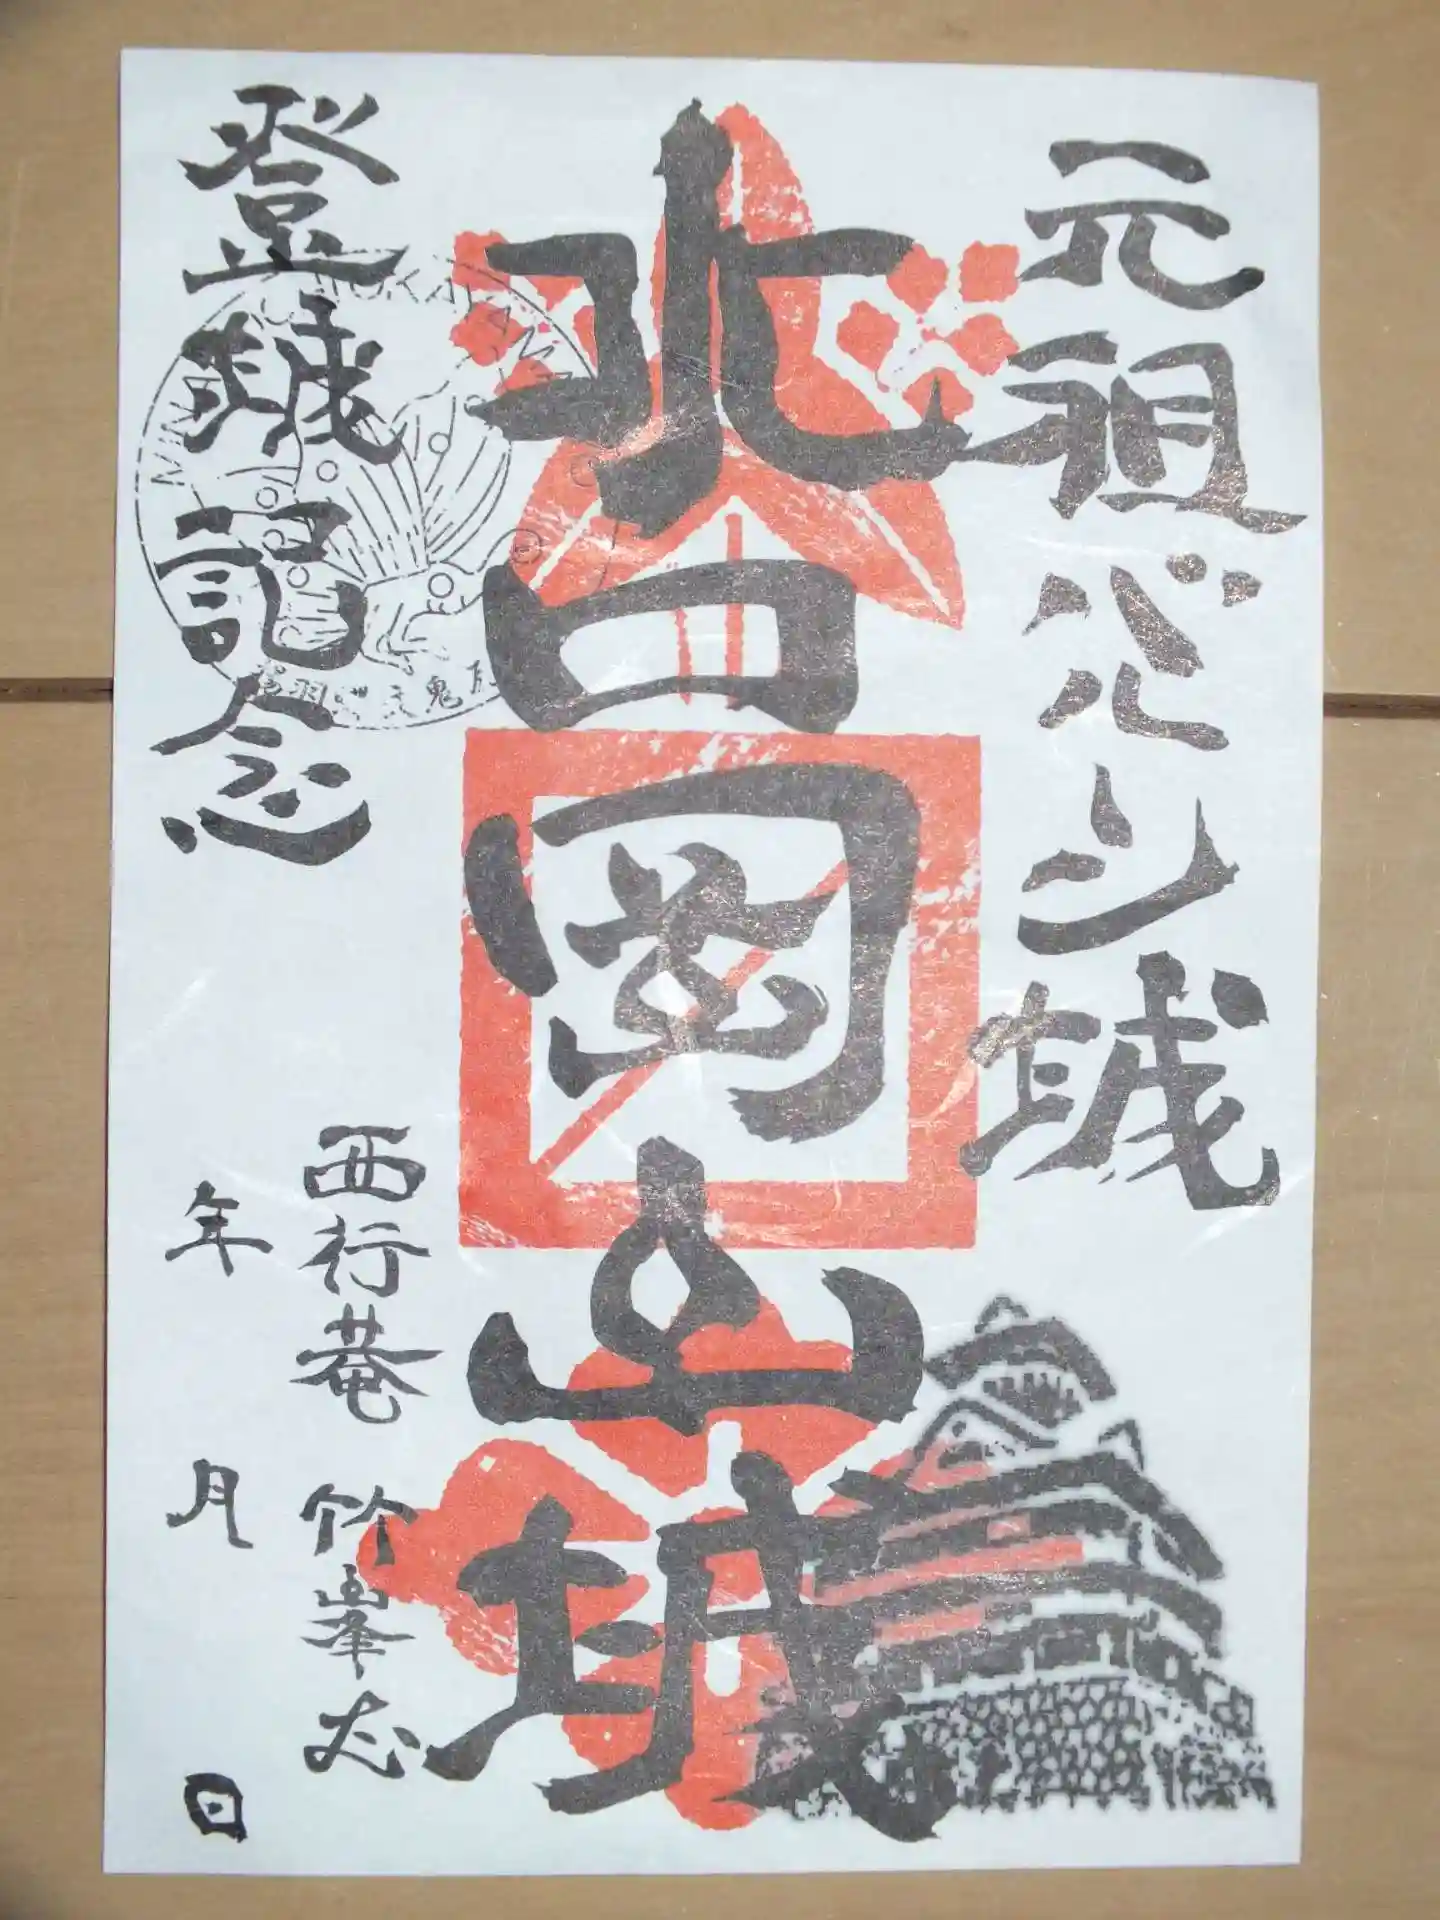 元祖バルーン城
水口岡山城
登城記念
西行菴 竹峯
年 月 日